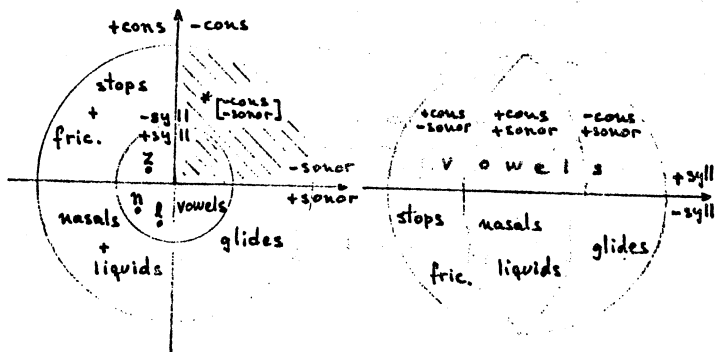 +cons -cons
stops
+
fric.
* [-cons
-sonor]
-syll
+syll
z
-sonor
+sonor
n
l
vowels
nasals
+
liquids
glides
+cons +cons -cons
-sonor +sonor +sonor
v o w e l s
+syll
-syll
stops
nasals
glides
fric.
liquids